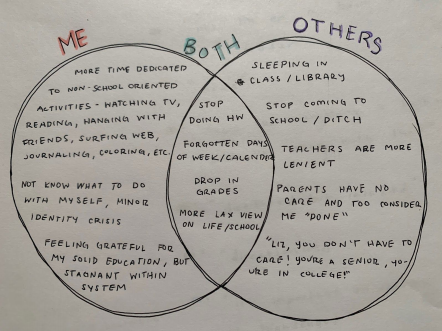 ME
BOTH
OTHERS
MORE TIME DEDICATED
TO NON-SCHOOL ORIENTED
ACTIVITIES - WATCHING TV,
READING, HANGING WITH
FRIENDS, SURFING WEB,
JOURNALING, COLORING, ETC.
NOT KNOW WHAT TO DO
WITH MYSELF, MINOR
IDENTITY CRISIS
FEELING GRATEFUL FOR
MY SOLID EDUCATION, BUT
STAGNANT WITHIN
SYSTEM
STOP
DOING HW
FORGOTTEN DAYS
OF WEEK/CALENDER
DROP IN
GRADES
MORE LAX VIEW
ON LIFE/SCHOOL
SLEEPING IN
CLASS / LIBRARY
STOP COMING TO
SCHOOL / DITCH
TEACHERS ARE MORE
LENIENT
PARENTS HAVE NO
CARE AND TOO CONSIDER
ME "DONE"
"LIZ, YOU DON'T HAVE TO
CARE! YOU'RE A SENIOR, YO-
URE IN COLLEGE!"